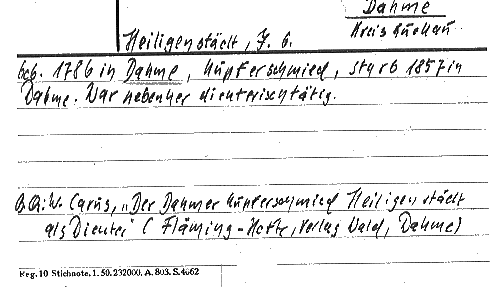 Dahme
Kreis Luckau
Heiligenstädt, J. G.
geb. 1786 in Dahme, Kupferschmied, starb 1857 in
Dahme. War nebenher dichterisch tätig.
W. Carus, „Der Dahmer Kupferschmied Heiligenstädt
als Dichter" (Fläming-Hefte, Verlag Wald, Dahme)
Reg. 10 Stichnote. 1. 50. 232000. A. 803. S. 4062